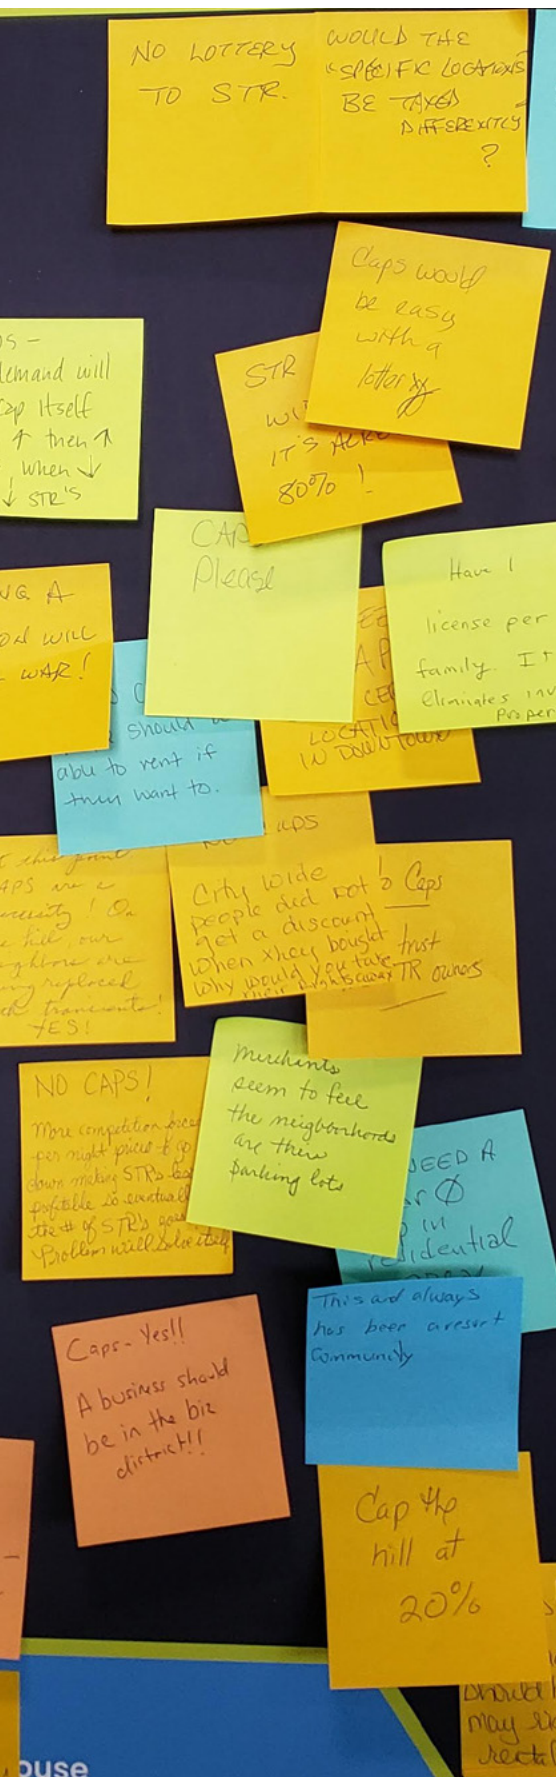 NO LOTTERY
TO STR.
WOULD THE
"SPECIFIC LOCATIONS"
BE TAXED
DIFFERENTLY
?
Caps would
be easy
with a
lottery
STR
IT'S
80% !
demand will
cap itself
↑ then ↑
when ↓
↓ STR'S
CAPS
Please
Have 1
license per
family. It
eliminates
A
WILL
WAR!
should
able to rent if
them want to.
LOCATIO
IN DOWNTOWN
this point
CAPS are a
necessity! On
the hill, our
neighbors are
being replaced
transients!
YES!
City wide
people did not
get a discount
when they bought
why would you take
their rights away
Caps
trust
STR owners
NO CAPS!
More competition forces
per night prices to go
down making STRs less
profitable so eventually
the # of STRs goes
Problem will solve itself
Merchants
seem to feel
the neighborhoods
are their
parking lots
NEED A
Ø
in
residential
This and always
has been a resort
Community
Caps - Yes!!
A business should
be in the biz
district!!
Cap the
hill at
20%
should
may
rental
ouse